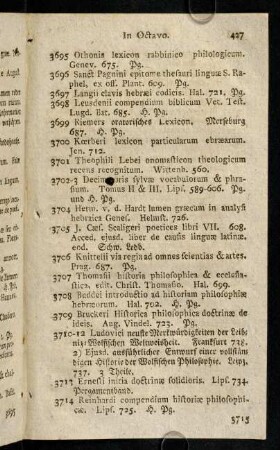 In Octavo. 427
3695 Othonis lexicon rabbinico philologicum.
Genev. 675. Pg.
3696 Sanct Pagnini epitome thesauri linguæ S. Ra-
phel, ex off. Plant. 609. Pg.
3697 Langii clavis hebræi codicis. Hal. 721, Pg.
3698 Leusdenii compendium biblicum Vet. Test.
Lugd. Bat. 685. H. Pg.
3699 Riemers oratorisches Lexicon. Merseburg
687. H. Pg.
3700 Kœrberi lexicon particularum ebræarum.
Jen. 712.
3701 Theophili Lebei onomasticon theologicum
recens recognitum. Wittenb. 560.
3702-3 Decim oris sylvæ vocabulorum & phra-
sium. Tomus II & III, Lips. 589-606. Pg.
und H. Pg.
3704 Herm. v. d. Hardt lumen græcum in analysi
hebraica Genes. Helmst. 726.
3705 J. Cæs. Scaligeri poetices libri VII. 608.
Acced. ejusd. liber de causis linguæ latinæ.
end. Schw. Leb.
3706 Knittelii via regia ad omnes scientias & artes.
Prag. 687. Pg.
3707 Thomasii historia philosophica & ecclesia-
stica. edit. Christ. Thomasio. Hal. 699.
3708 Buddei introductio ad historiam philosophiæ
hebræorum. Hal. 702. H. Pg.
3709 Bruckeri Historica philosophica doctrinæ de
ideis. Aug. Vindel. 723. Pg.
3710-12 Ludovici neuste Merkwürdigkeiten der Leib-
niz: Wolfischen Weltweisheit. Frankfurt 738.
2) Ejusd. ausführlicher Entwurf einer vollstän-
digen Historie der Wolfischen Philosophie. Leipz.
737. 3 Theile.
3713 Ernesti initia doctrinæ solidioris. Lips. 734.
Pergamentband.
3714 Reinhardi compendium historiæ philosophi-
cæ. Lips. 725. H. Pg.
3715